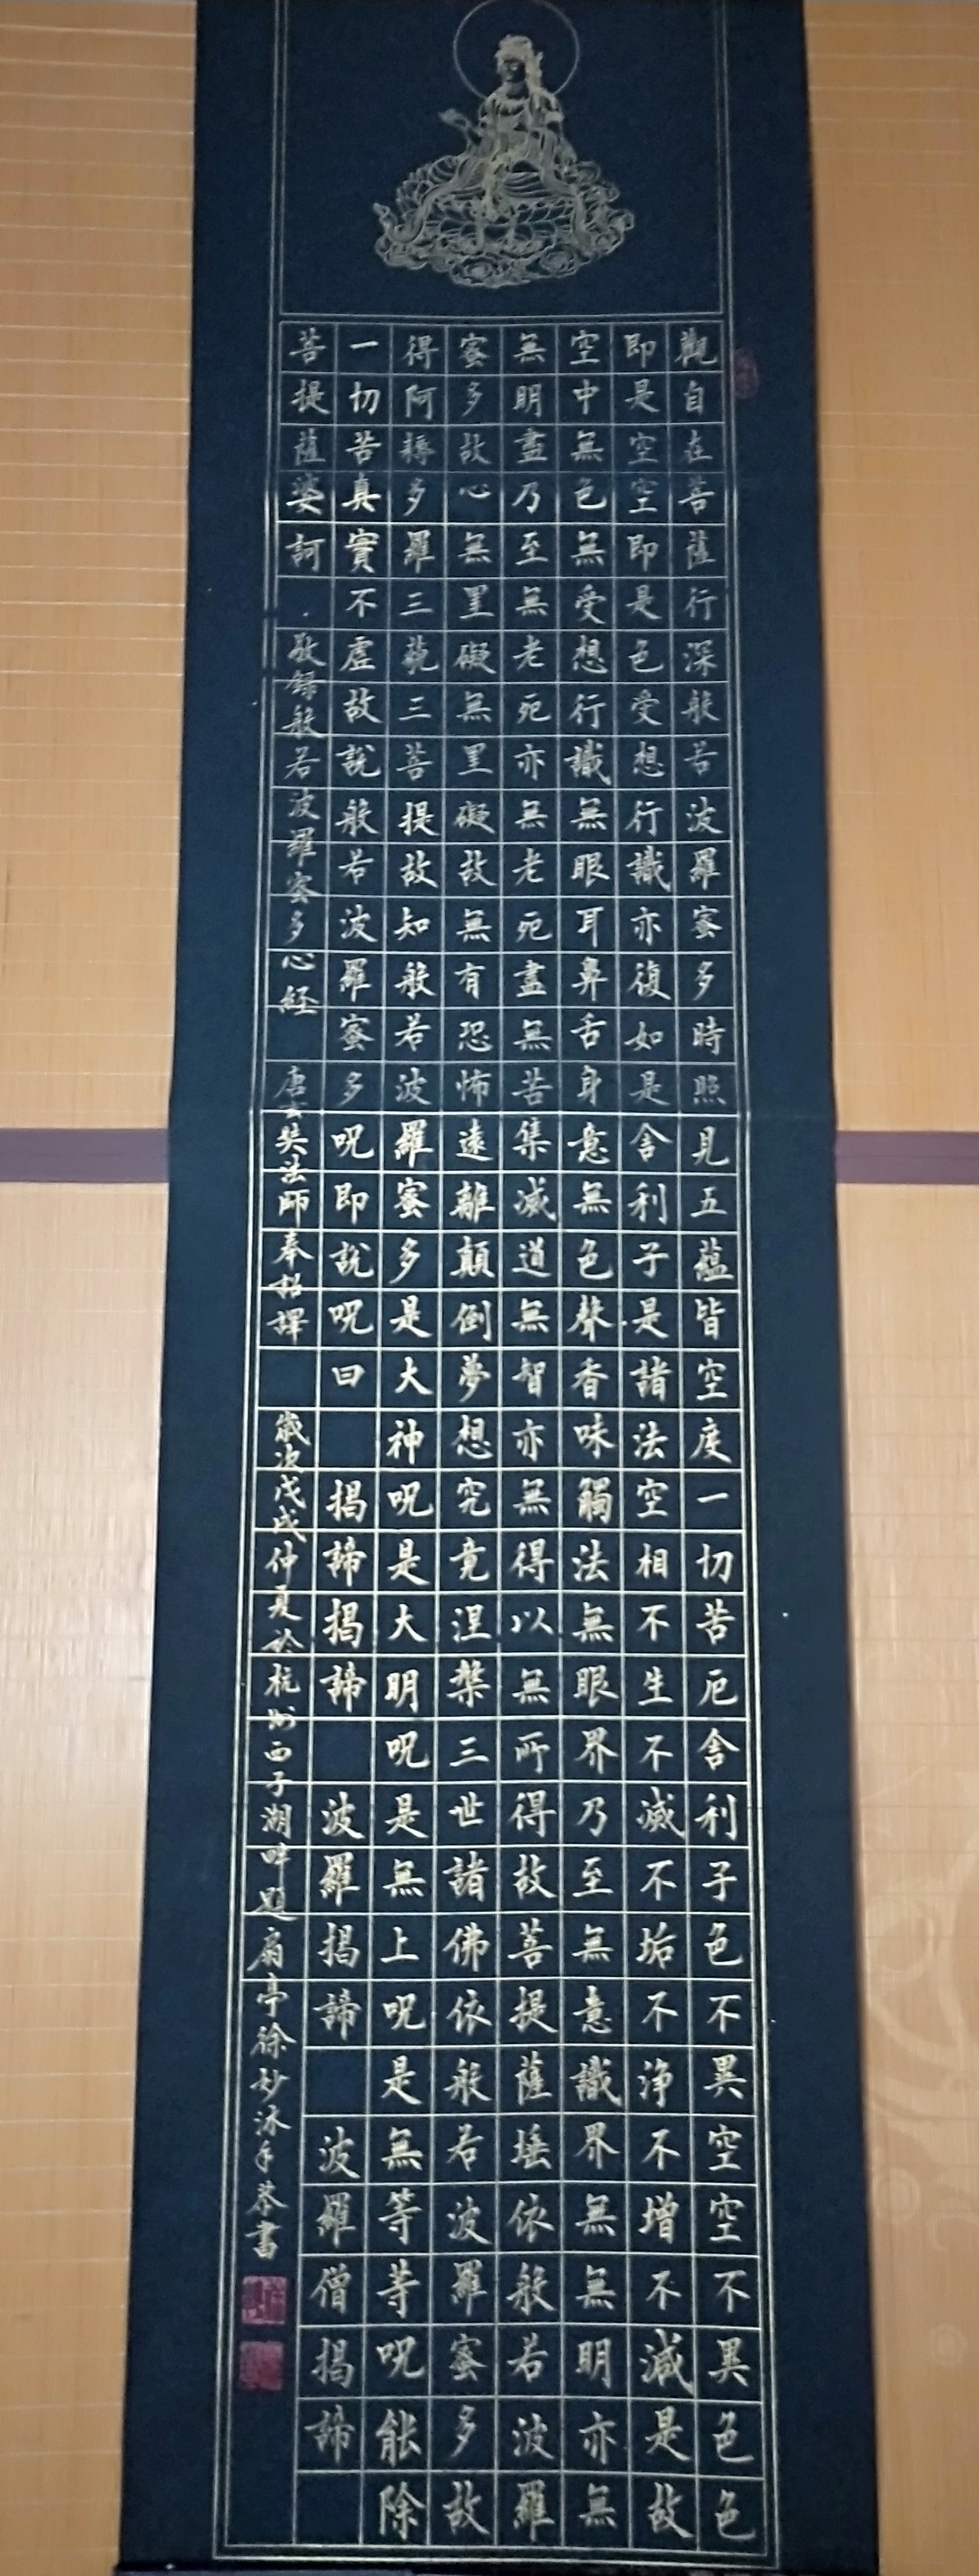 觀自在菩薩行深般若波羅蜜多時照見五蘊皆空度一切苦厄舍利子色不異空空不異色色
即是空空即是色受想行識亦復如是舍利子是諸法空相不生不滅不垢不净不增不減是故
空中無色無受想行識無眼耳鼻舌身意無色聲香味觸法無眼界乃至無意識界無無明亦無
無明盡乃至無老死亦無老死盡無苦集滅道無智亦無得以無所得故菩提薩埵依般若波羅
蜜多故心無罣礙無罣礙故無有恐怖遠離顛倒夢想究竟涅槃三世諸佛依般若波羅蜜多故
得阿耨多羅三藐三菩提故知般若波羅蜜多是大神呪是大明呪是無上呪是無等等呪能除
一切苦真實不虛故說般若波羅蜜多呪即說呪曰 揭諦揭諦 波羅揭諦 波羅僧揭諦
菩提薩婆訶 敬録般若波羅蜜多心經 唐玄奘法師奉招譯 歲次戊戌仲夏於杭州西子湖畔題扇亭徐妙沐手恭書